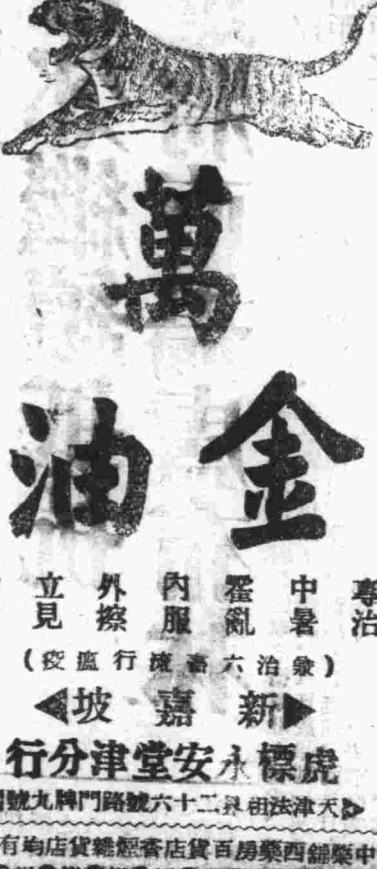 萬
金油
專治
中暑
霍亂
內服
外擦
立見
(兼治六畜流行瘟疫)
▶新嘉坡◀
虎標永安堂津分行
天津法租界二十六號路門牌九號
中藥舖西藥房百貨店香煙雜貨店均有